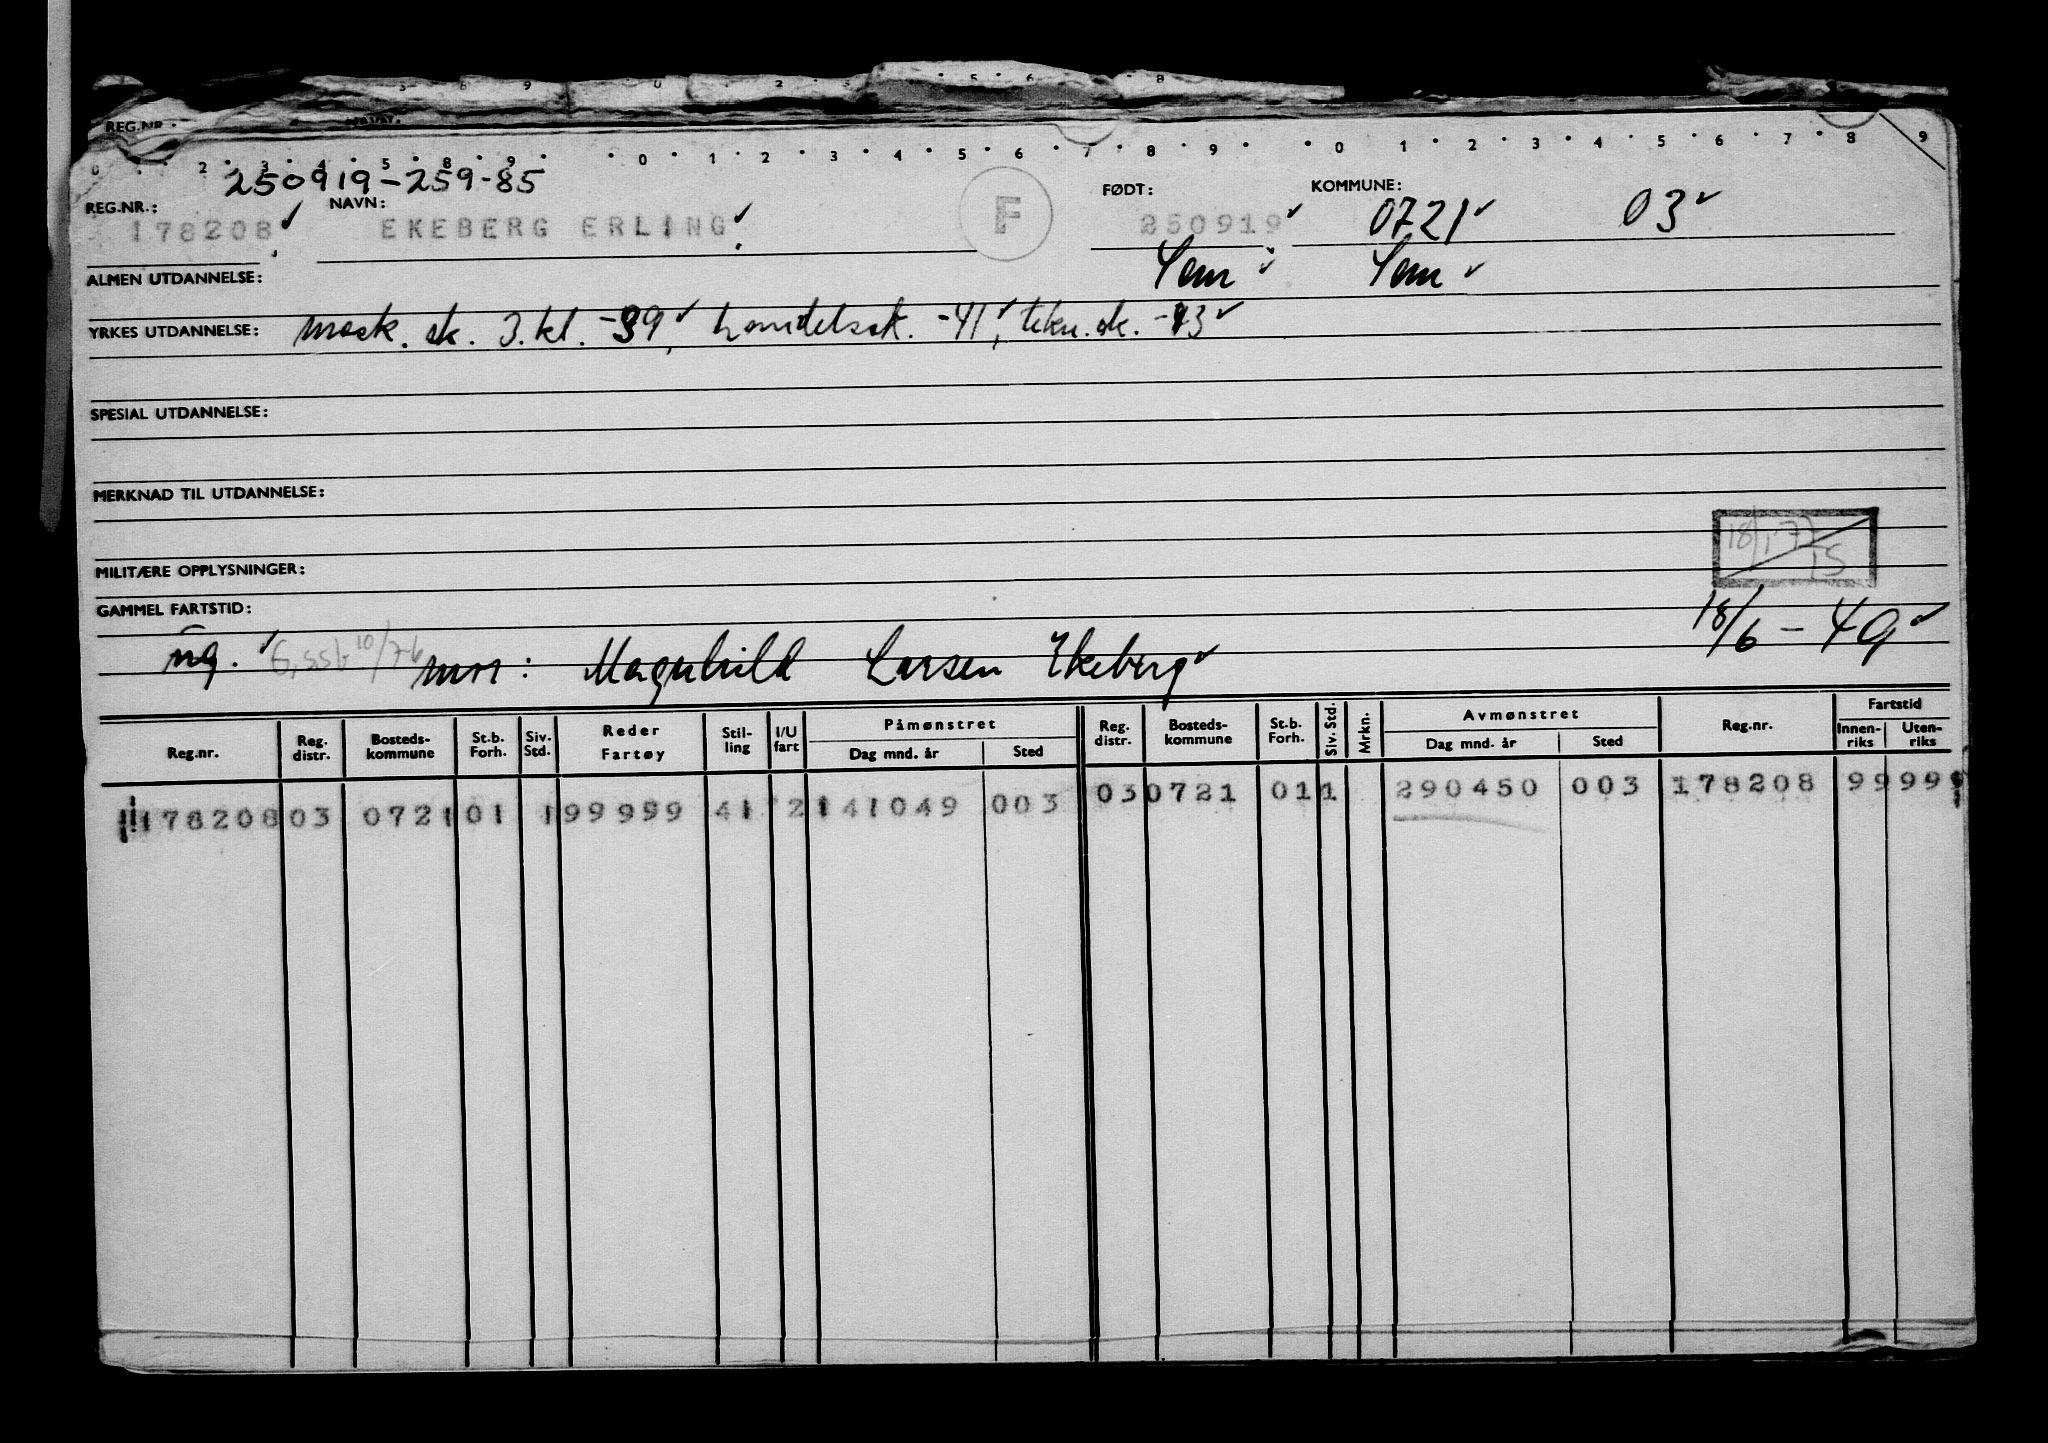 REG.NR.
250919-259-85
REG.NR.: 178208 NAVN: EKEBERG ERLING F FØDT: 250919 KOMMUNE: 0721 03
Sem Sem
ALMEN UTDANNELSE:
YRKES UTDANNELSE: mask. sk. 3. kl. -39, handelssk. -41, tekn. sk. -43
SPESIAL UTDANNELSE:
MERKNAD TIL UTDANNELSE:
18/1-77
MILITÆRE OPPLYSNINGER:
GAMMEL FARTSTID:
18/6-49
ug. 10/76 mor: Magnhild Larsen Ekeberg
Reg.nr. Reg. distr. Bosteds-kommune St.b. Forh. Siv. Std. Reder Fartøy Stil-ling I/U fart Påmønstret Dag mnd. år Sted Reg. distr. Bosteds-kommune St.b. Forh. Siv. Std. Mrkn. Avmønstret Dag mnd. år Sted Reg.nr. Fartstid Innen-riks Uten-riks
178208 03 0721 01 1 99999 41 2 141049 003 03 0721 01 1 290450 003 178208 99 99